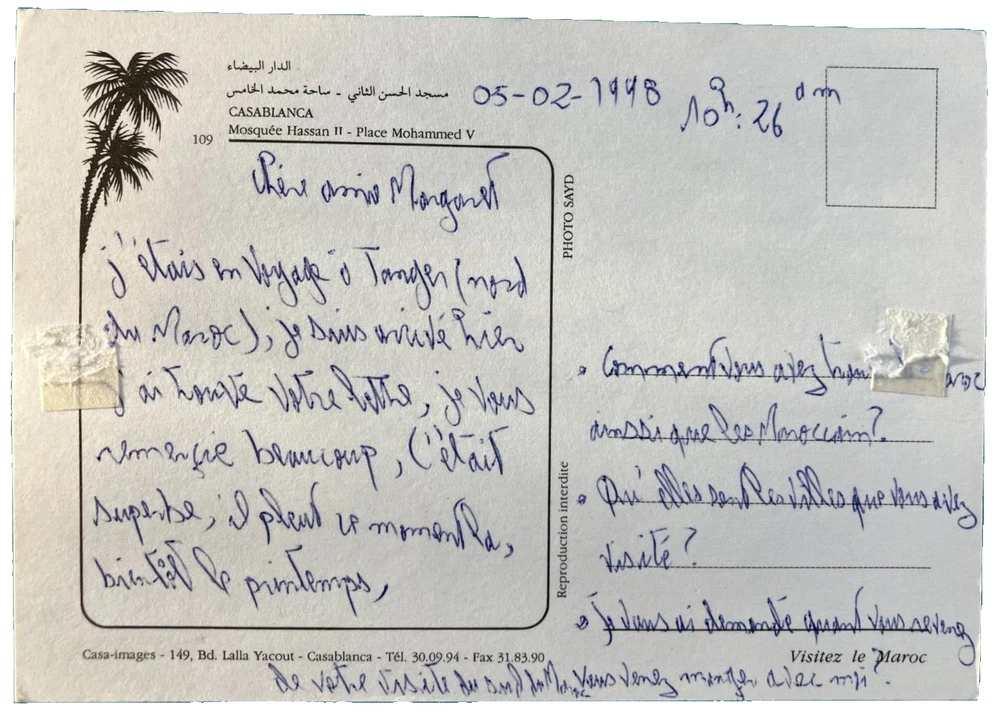 الدار البيضاء
مسجد الحسن الثاني - ساحة محمد الخامس
CASABLANCA
Mosquée Hassan II - Place Mohammed V
109
05-02-1998 10h: 26 am
Chère amie Margaret
j'étais en voyage à Tanger (nord
du Maroc), je suis arrivé hier
j'ai trouvé votre lettre, je vous
remerçie beaucoup, c'était
superbe, il pleut ce moment là,
bientôt le printemps,
PHOTO SAYD
Reproduction interdite
• Comment vous avez aroc
ainssi que les Maroccain?
• Qu'elles sont les villes que vous avez
visité?
• je vous ai demandé quant vous revenez
Casa-images - 149, Bd. Lalla Yacout - Casablanca - Tél. 30.09.94 - Fax 31.83.90
Visitez le Maroc
de votre visite du sud du Maroc, vous venez manger avec moi?